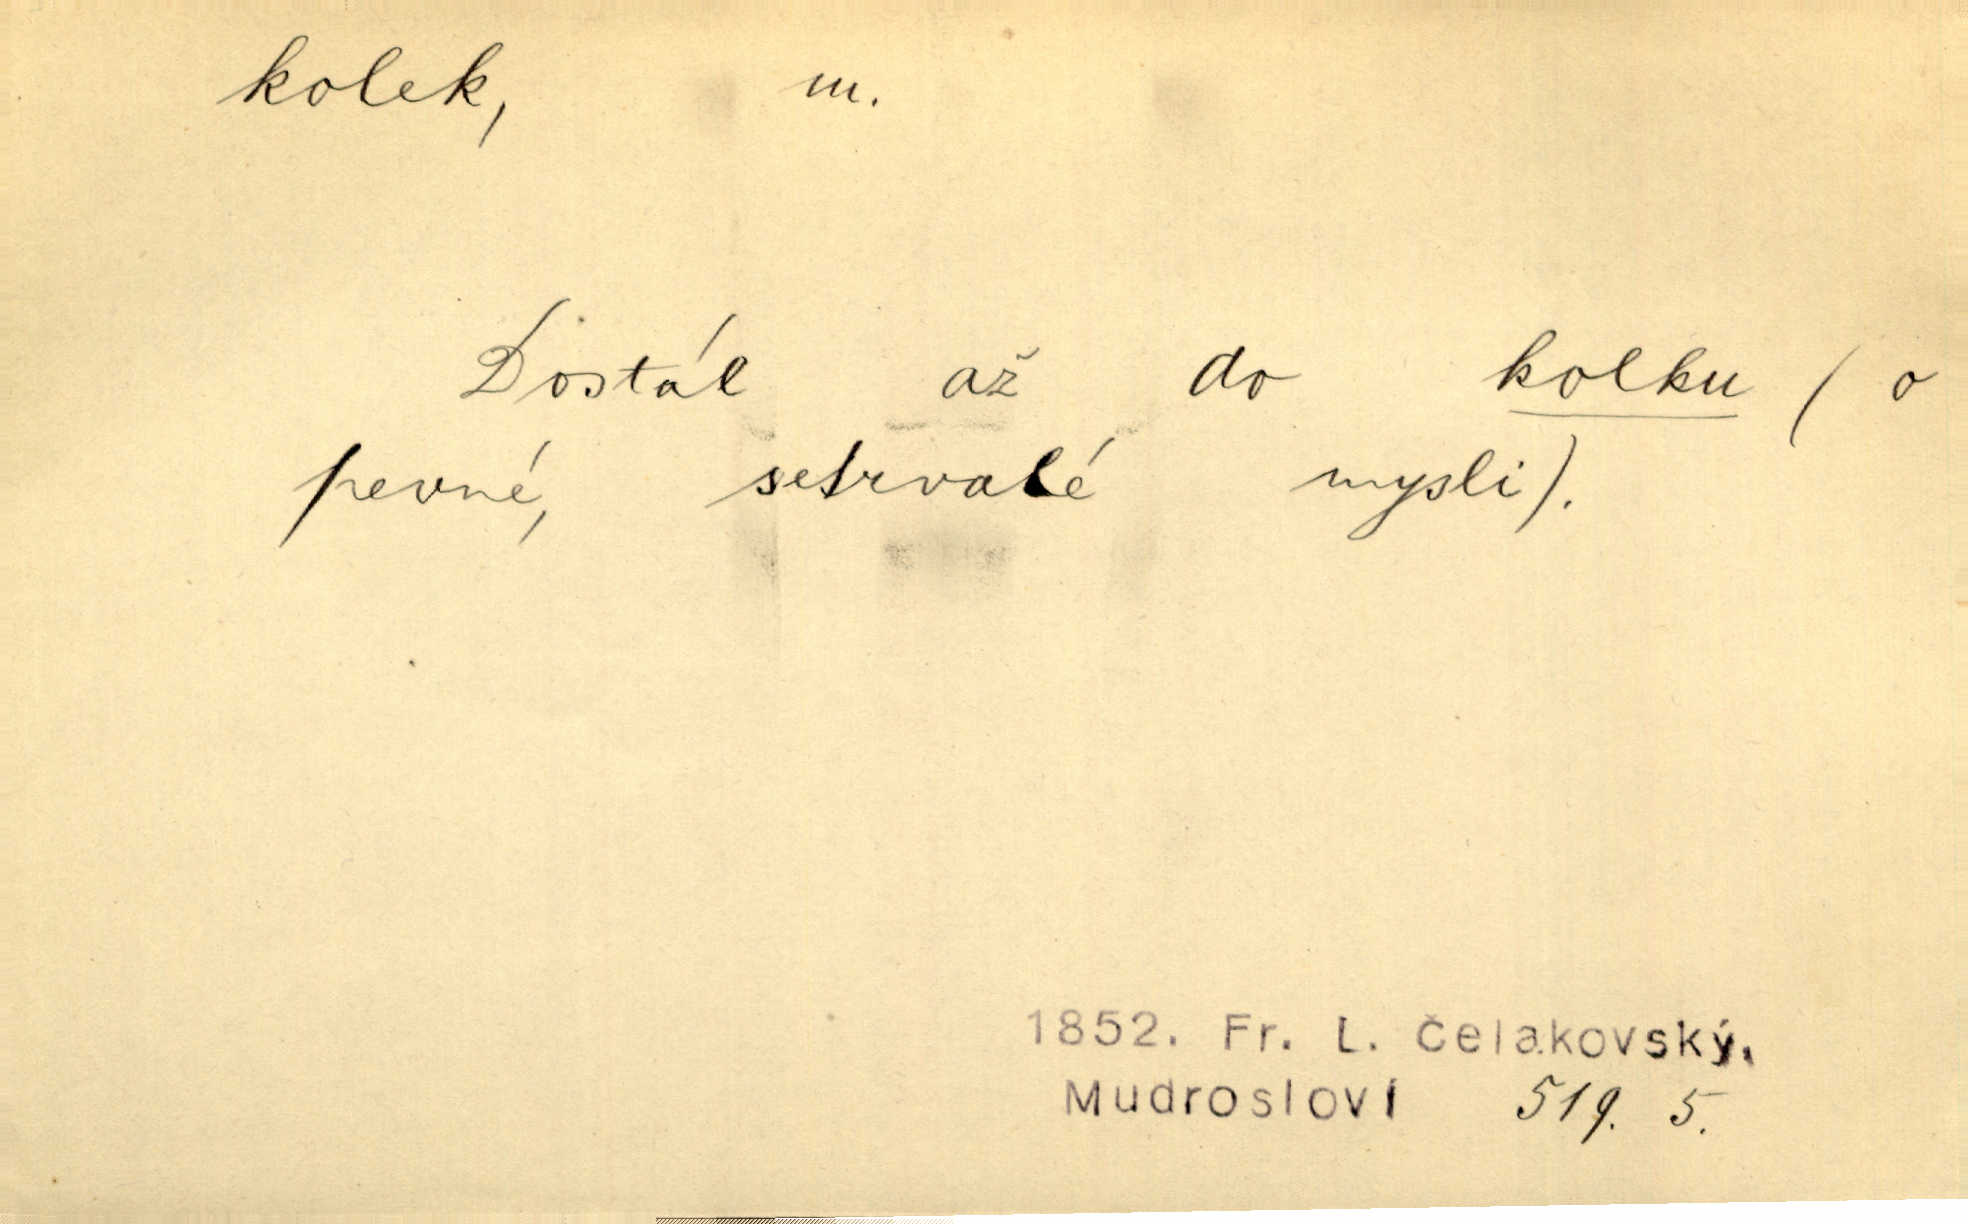 kolek, m.
Dostál až do kolku (o
pevné, setrvalé mysli).
1852. Fr. L. Čelakovský,
Mudrosloví 519. 5.